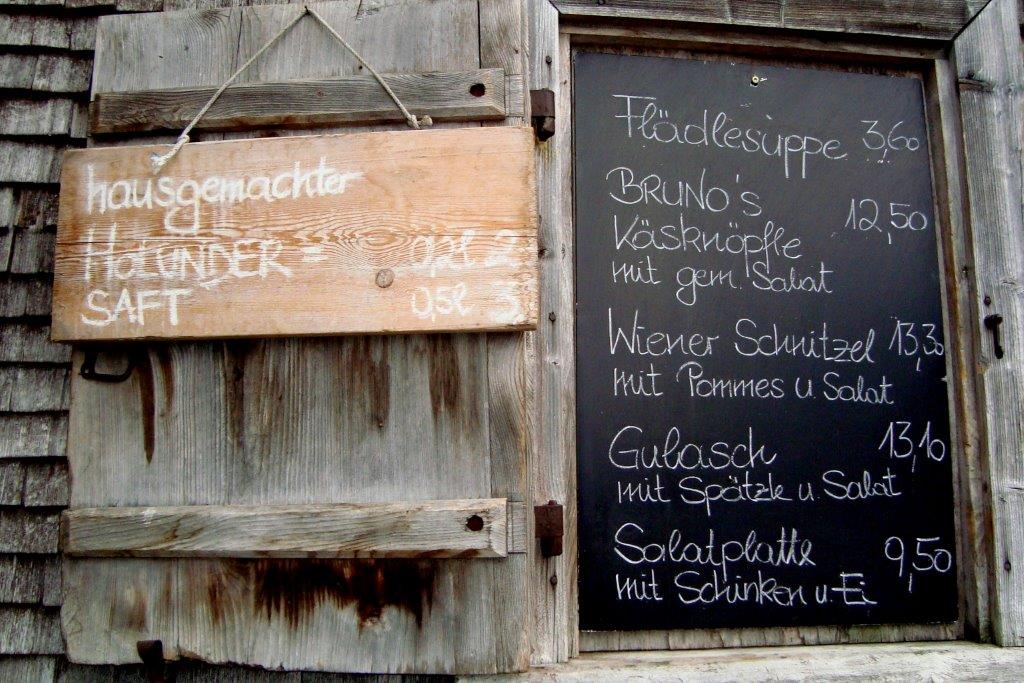 hausgemachter
HOLUNDER = 0,2l 2
SAFT 0,5l 3
Flädlesuppe 3,60
BRUNO's
Käsknöpfle 12,50
mit gem. Salat
Wiener Schnitzel 13,30
mit Pommes u. Salat
Gulasch 13,10
mit Spätzle u. Salat
Salatplatte 9,50
mit Schinken u. Ei